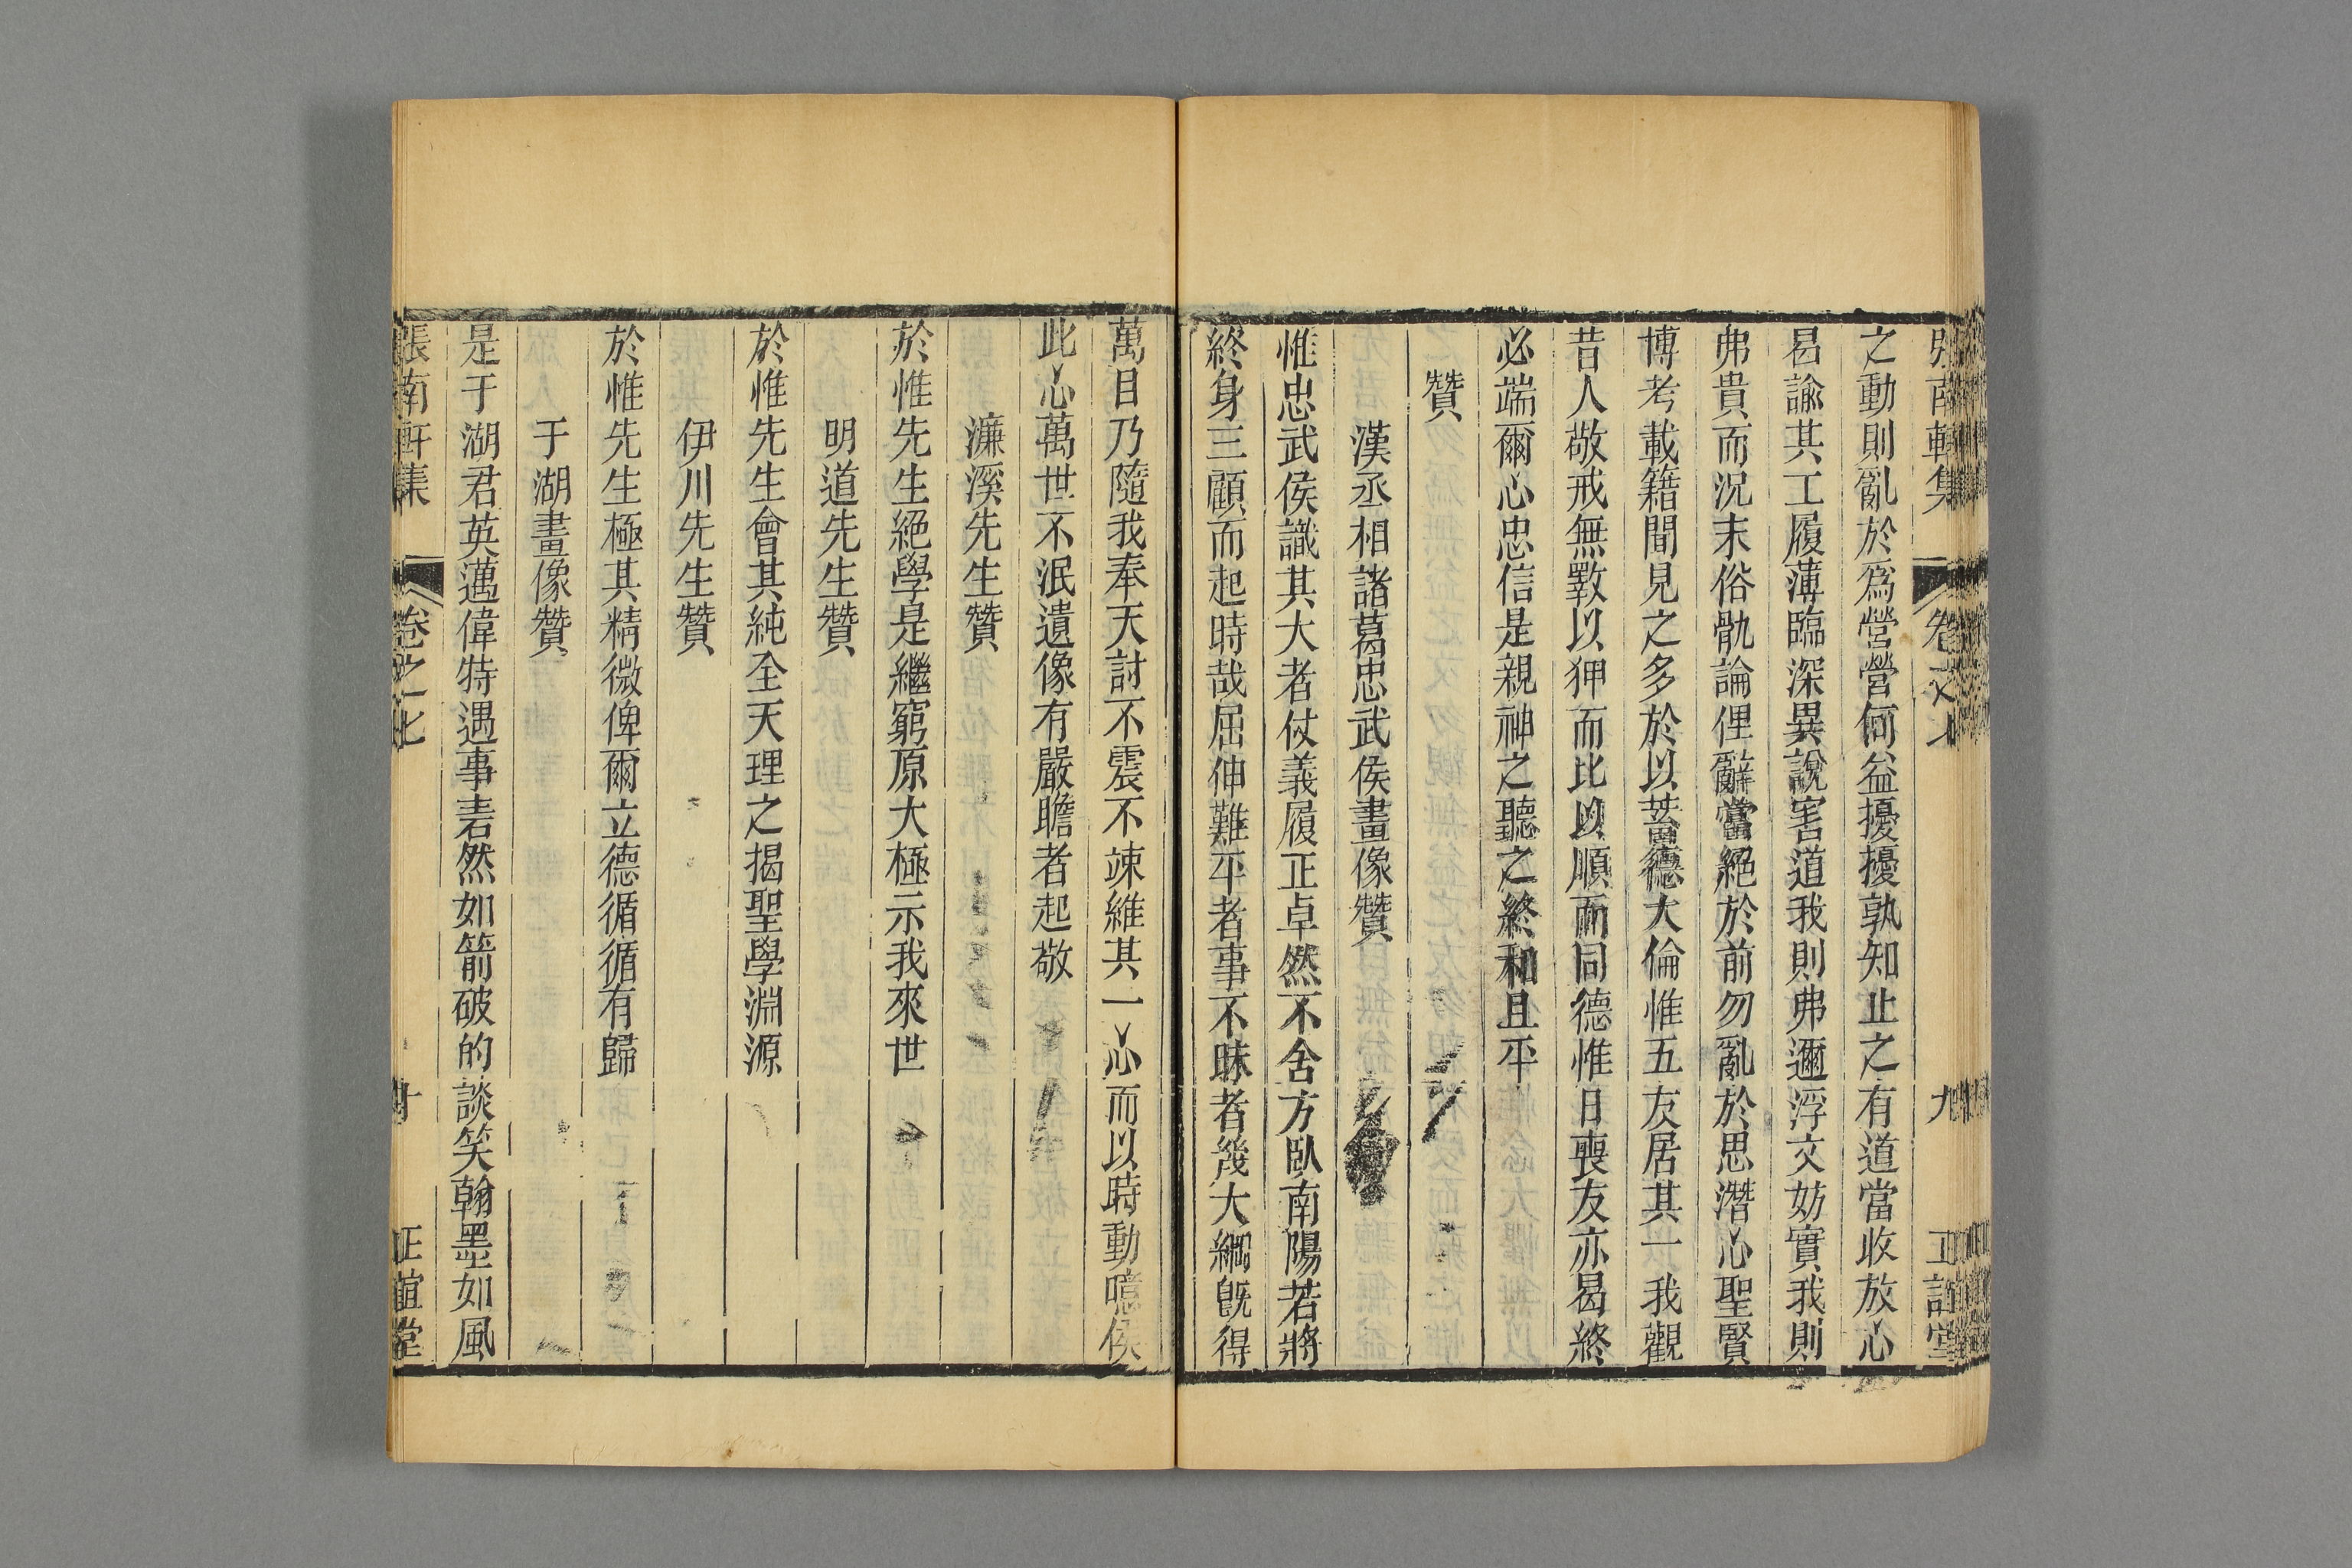 張南軒集 卷之七 九 正誼堂
之動則亂於爲營營何益擾擾孰知止之有道當收放心
曷諭其工履薄臨深異說害道我則弗邇浮文妨實我則
弗貴而況末俗骫論俚辭當絕於前勿亂於思潛心聖賢
博考載籍聞見之多於以蓄德大倫惟五友居其一我觀
昔人敬戒無斁以狎而比以順而同德惟日喪友亦曷終
必端爾心忠信是親神之聽之終和且平
贊
漢丞相諸葛忠武侯畫像贊
惟忠武侯識其大者仗義履正卓然不舍方臥南陽若將
終身三顧而起時哉屈伸難平者事不昧者幾大綱旣得
萬目乃隨我奉天討不震不竦維其一心而以時動噫侯
此心萬世不泯遺像有嚴瞻者起敬
濂溪先生贊
於惟先生絕學是繼窮原大極示我來世
明道先生贊
於惟先生會其純全天理之揭聖學淵源
伊川先生贊
於惟先生極其精微俾爾立德循循有歸
于湖畫像贊
是于湖君英邁偉特遇事砉然如箭破的談笑翰墨如風
張南軒集 卷之七 十 正誼堂